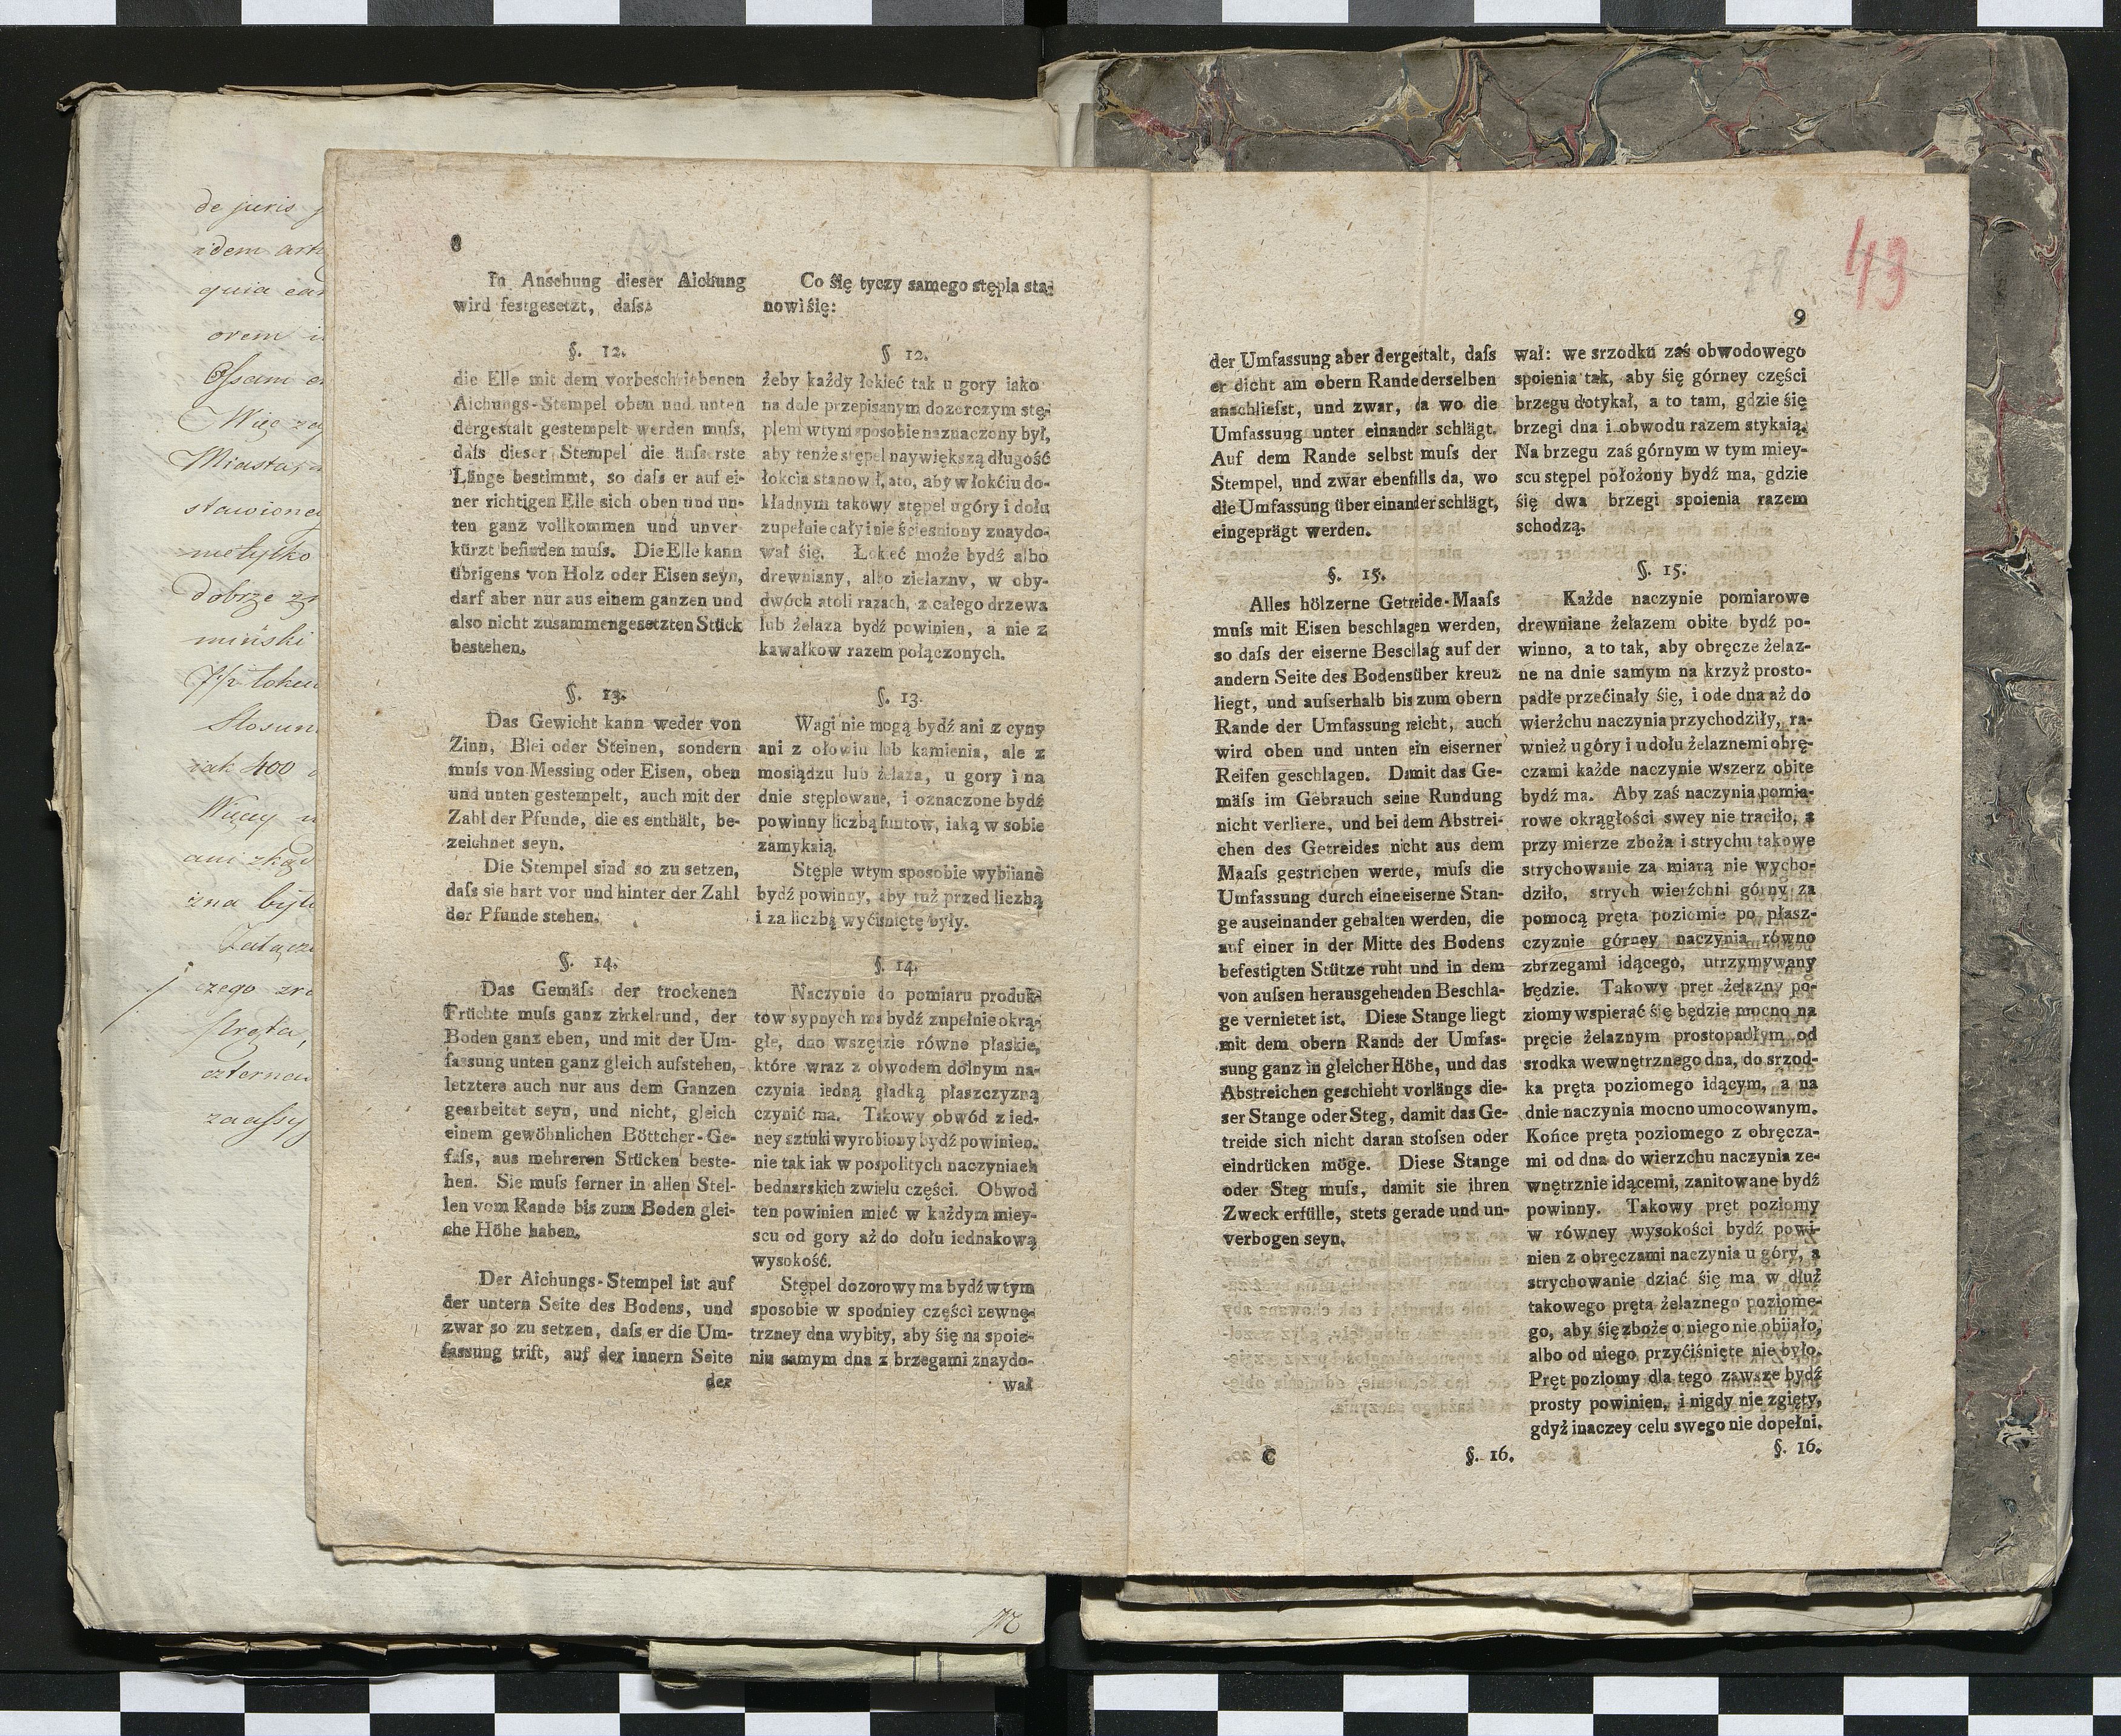 de juris
idem
quia
orem
Miasta
dobrze
miński
iak 400
czego
72
8
In Ansehung dieser Aichung
wird festgesetzt, daſs:
§. 12.
die Elle mit dem vorbeschriebenen
Aichungs-Stempel oben und unten
dergestalt gestempelt werden muſs,
daſs dieser Stempel die äuſserste
Länge bestimmt, so daſs er auf ei-
ner richtigen Elle sich oben und un-
ten ganz vollkommen und unver-
kürzt befinden muſs. Die Elle kann
übrigens von Holz oder Eisen seyn,
darf aber nur aus einem ganzen und
also nicht zusammengesetzten Stück
bestehen.
§. 13.
Das Gewicht kann weder von
Zinn, Blei oder Steinen, sondern
muſs von Messing oder Eisen, oben
und unten gestempelt, auch mit der
Zahl der Pfunde, die es enthält, be-
zeichnet seyn.
Die Stempel sind so zu setzen,
daſs sie hart vor und hinter der Zahl
der Pfunde stehen.
§. 14.
Das Gemäſs der trockenen
Früchte muſs ganz zirkelrund, der
Boden ganz eben, und mit der Um-
fassung unten ganz gleich aufstehen,
letztere auch nur aus dem Ganzen
gearbeitet seyn, und nicht, gleich
einem gewöhnlichen Böttcher-Ge-
fäſs, aus mehreren Stücken beste-
hen. Sie muſs ferner in allen Stel-
len vom Rande bis zum Boden glei-
che Höhe haben.
Der Aichungs-Stempel ist auf
der untern Seite des Bodens, und
zwar so zu setzen, daſs er die Um-
fassung trift, auf der innern Seite
der
Co śię tyczy samego stępla sta-
nowi śię:
§ 12.
żeby każdy łokieć tak u gory iako
na dole przepisanym dozorczym stę-
plem w tym sposobie naznaczony był,
aby tenże stępel naywiększą długość
łokcia stanowił, a to, aby w łokćiu do-
kładnym takowy stępel u góry i dołu
zupełnie cały i nie śćiesniony znaydo-
wał śię. Łokieć może bydź albo
drewniany, albo żielazny, w oby-
dwóch atoli razach, z całego drzewa
lub żelaza bydź powinien, a nie z
kawałkow razem połączonych.
§. 13.
Wagi nie mogą bydź ani z cyny
ani z ołowiu lub kamienia, ale z
mosiądzu lub żelaza, u gory i na
dnie stęplowane, i oznaczone bydź
powinny liczbą funtow, iaką w sobie
zamykaią.
Stęple w tym sposobie wybiiane
bydź powinny, aby tuż przed liczbą
i za liczbą wyćiśniętę były.
§. 14.
Naczynie do pomiaru produk-
tow sypnych ma bydź zupełnie okrą-
głe, dno wszędzie równe płaskie,
które wraz z obwodem dolnym na-
czynia iedną gładką płaszczyzną
czynić ma. Takowy obwód z ied-
ney sztuki wyrobiony bydź powinien.
nie tak iak w pospolitych naczyniach
bednarskich z wielu części. Obwod
ten powinien mieć w każdym miey-
scu od gory aż do dołu iednakową
wysokość.
Stępel dozorowy ma bydź w tym
sposobie w spodniey części zewnę-
trzney dna wybity, aby śię na spoie-
niu samym dna z brzegami znaydo-
wał
78
43
9
der Umfassung aber dergestalt, daſs
er dicht am obern Rande derselben
anschlieſst, und zwar, da wo die
Umfassung unter einander schlägt.
Auf dem Rande selbst muſs der
Stempel, und zwar ebenfalls da, wo
die Umfassung über einander schlägt,
eingeprägt werden.
§. 15.
Alles hölzerne Getreide-Maaſs
muſs mit Eisen beschlagen werden,
so daſs der eiserne Beschlag auf der
andern Seite des Bodens über kreuz
liegt, und auſserhalb bis zum obern
Rande der Umfassung reicht, auch
wird oben und unten ein eiserner
Reifen geschlagen. Damit das Ge-
mäſs im Gebrauch seine Rundung
nicht verliere, und bei dem Abstrei-
chen des Getreides nicht aus dem
Maaſs gestrichen werde, muſs die
Umfassung durch eine eiserne Stan-
ge auseinander gehalten werden, die
auf einer in der Mitte des Bodens
befestigten Stütze ruht und in dem
von auſsen herausgehenden Beschla-
ge vernietet ist. Diese Stange liegt
mit dem obern Rande der Umfas-
sung ganz in gleicher Höhe, und das
Abstreichen geschieht vorlängs die-
ser Stange oder Steg, damit das Ge-
treide sich nicht daran stoſsen oder
eindrücken möge. Diese Stange
oder Steg muſs, damit sie ihren
Zweck erfülle, stets gerade und un-
verbogen seyn.
C
§. 16.
wał: we srzodku zaś obwodowego
spoienia tak, aby śię górney części
brzegu dotykał, a to tam, gdzie śię
brzegi dna i obwodu razem stykaią.
Na brzegu zaś górnym w tym miey-
scu stępel położony bydź ma, gdzie
śię dwa brzegi spoienia razem
schodzą.
§. 15.
Każde naczynie pomiarowe
drewniane żelazem obite bydź po-
winno, a to tak, aby obręcze żelaz-
ne na dnie samym na krzyż prosto-
padłe przećinały śię, i ode dna aż do
wierźchu naczynia przychodziły, ra-
wnież u góry i u dołu żelaznemi obrę-
czami każde naczynie wszerz obite
bydź ma. Aby zaś naczynia pomia-
rowe okrągłości swey nie traciło, a
przy mierze zboża i strychu takowe
strychowanie za miarą nie wycho-
dziło, strych wierźchni górny za
pomocą pręta poziomie po płasz-
czyznie górney naczynia równo
z brzegami idącego, utrzymywany
będzie. Takowy pręt żelazny po-
ziomy wspierać śię będzie mocno na
pręcie żelaznym prostopadłym od
srodka wewnętrznego dna, do srzod-
ka pręta poziomego idącym, a na
dnie naczynia mocno umocowanym.
Końce pręta poziomego z obręcza-
mi od dna do wierzchu naczynia ze-
wnętrznie idącemi, zanitowane bydź
powinny. Takowy pręt poziomy
w równey wysokości bydź powi-
nien z obręczami naczynia u góry, a
strychowanie dziać śię ma w dłuż
takowego pręta żelaznego poziome-
go, aby śię zboże o niego nie obiiało,
albo od niego przyćiśnięte nie było.
Pręt poziomy dla tego zawsze bydź
prosty powinien, i nigdy nie zgięty,
gdyż inaczey celu swego nie dopełni.
§. 16.